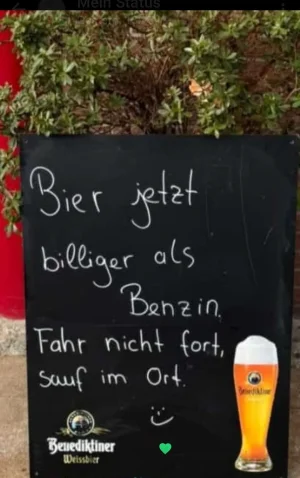 Mein Status
Bier jetzt
billiger als
Benzin.
Fahr nicht fort,
sauf im Ort.
Benediktiner
Benediktiner
Weissbier